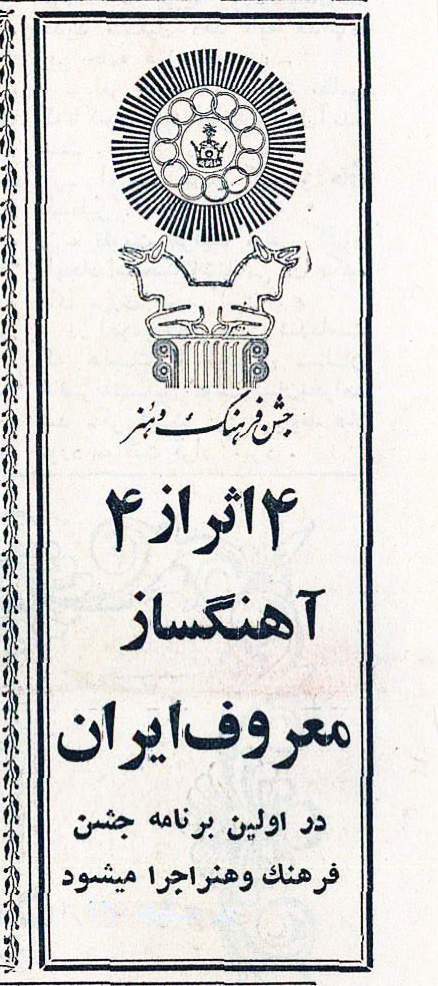 جشن فرهنگ و هنر
۴ اثر از ۴
آهنگساز
معروف ایران
در اولین برنامه جشن
فرهنك وهنر اجرا میشود